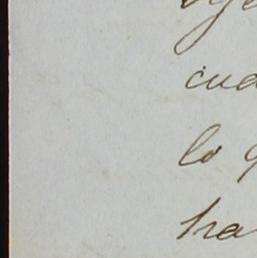 cua
lo q
ha